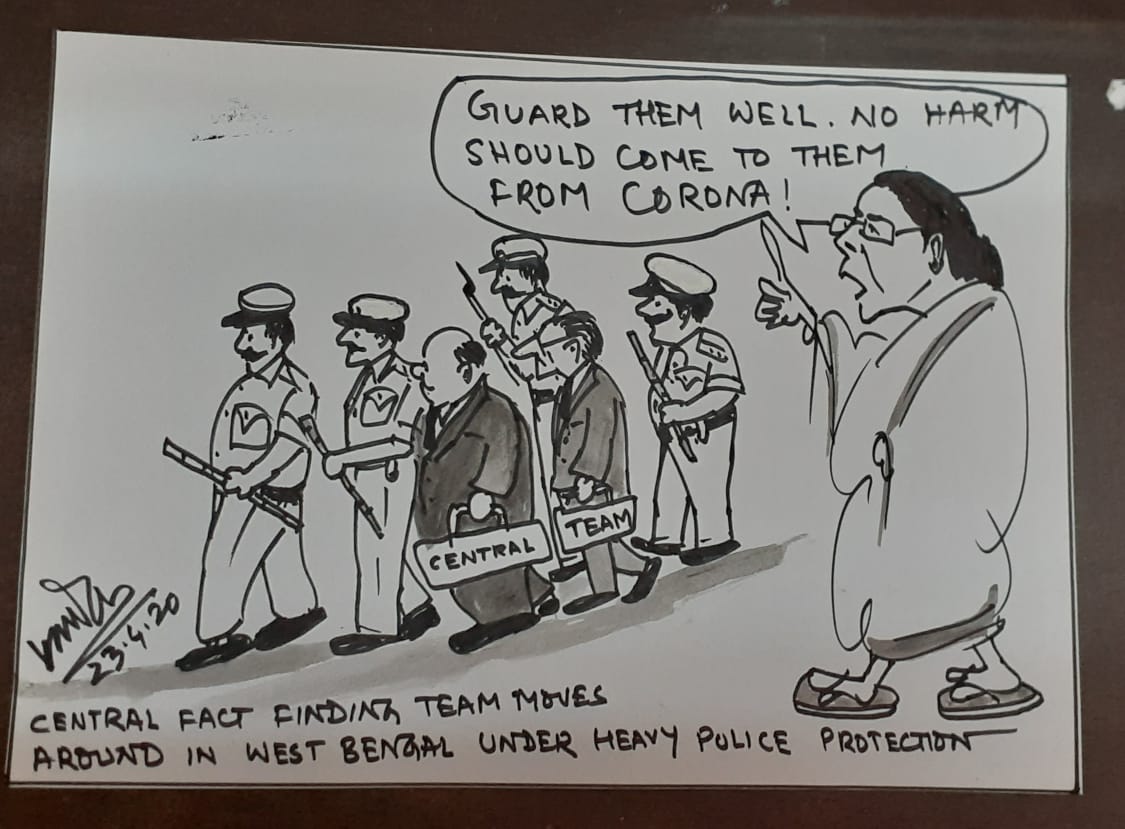 GUARD THEM WELL. NO HARM
SHOULD COME TO THEM
FROM CORONA!
CENTRAL
TEAM
23.4.20
CENTRAL FACT FINDING TEAM MOVES
AROUND IN WEST BENGAL UNDER HEAVY POLICE PROTECTION